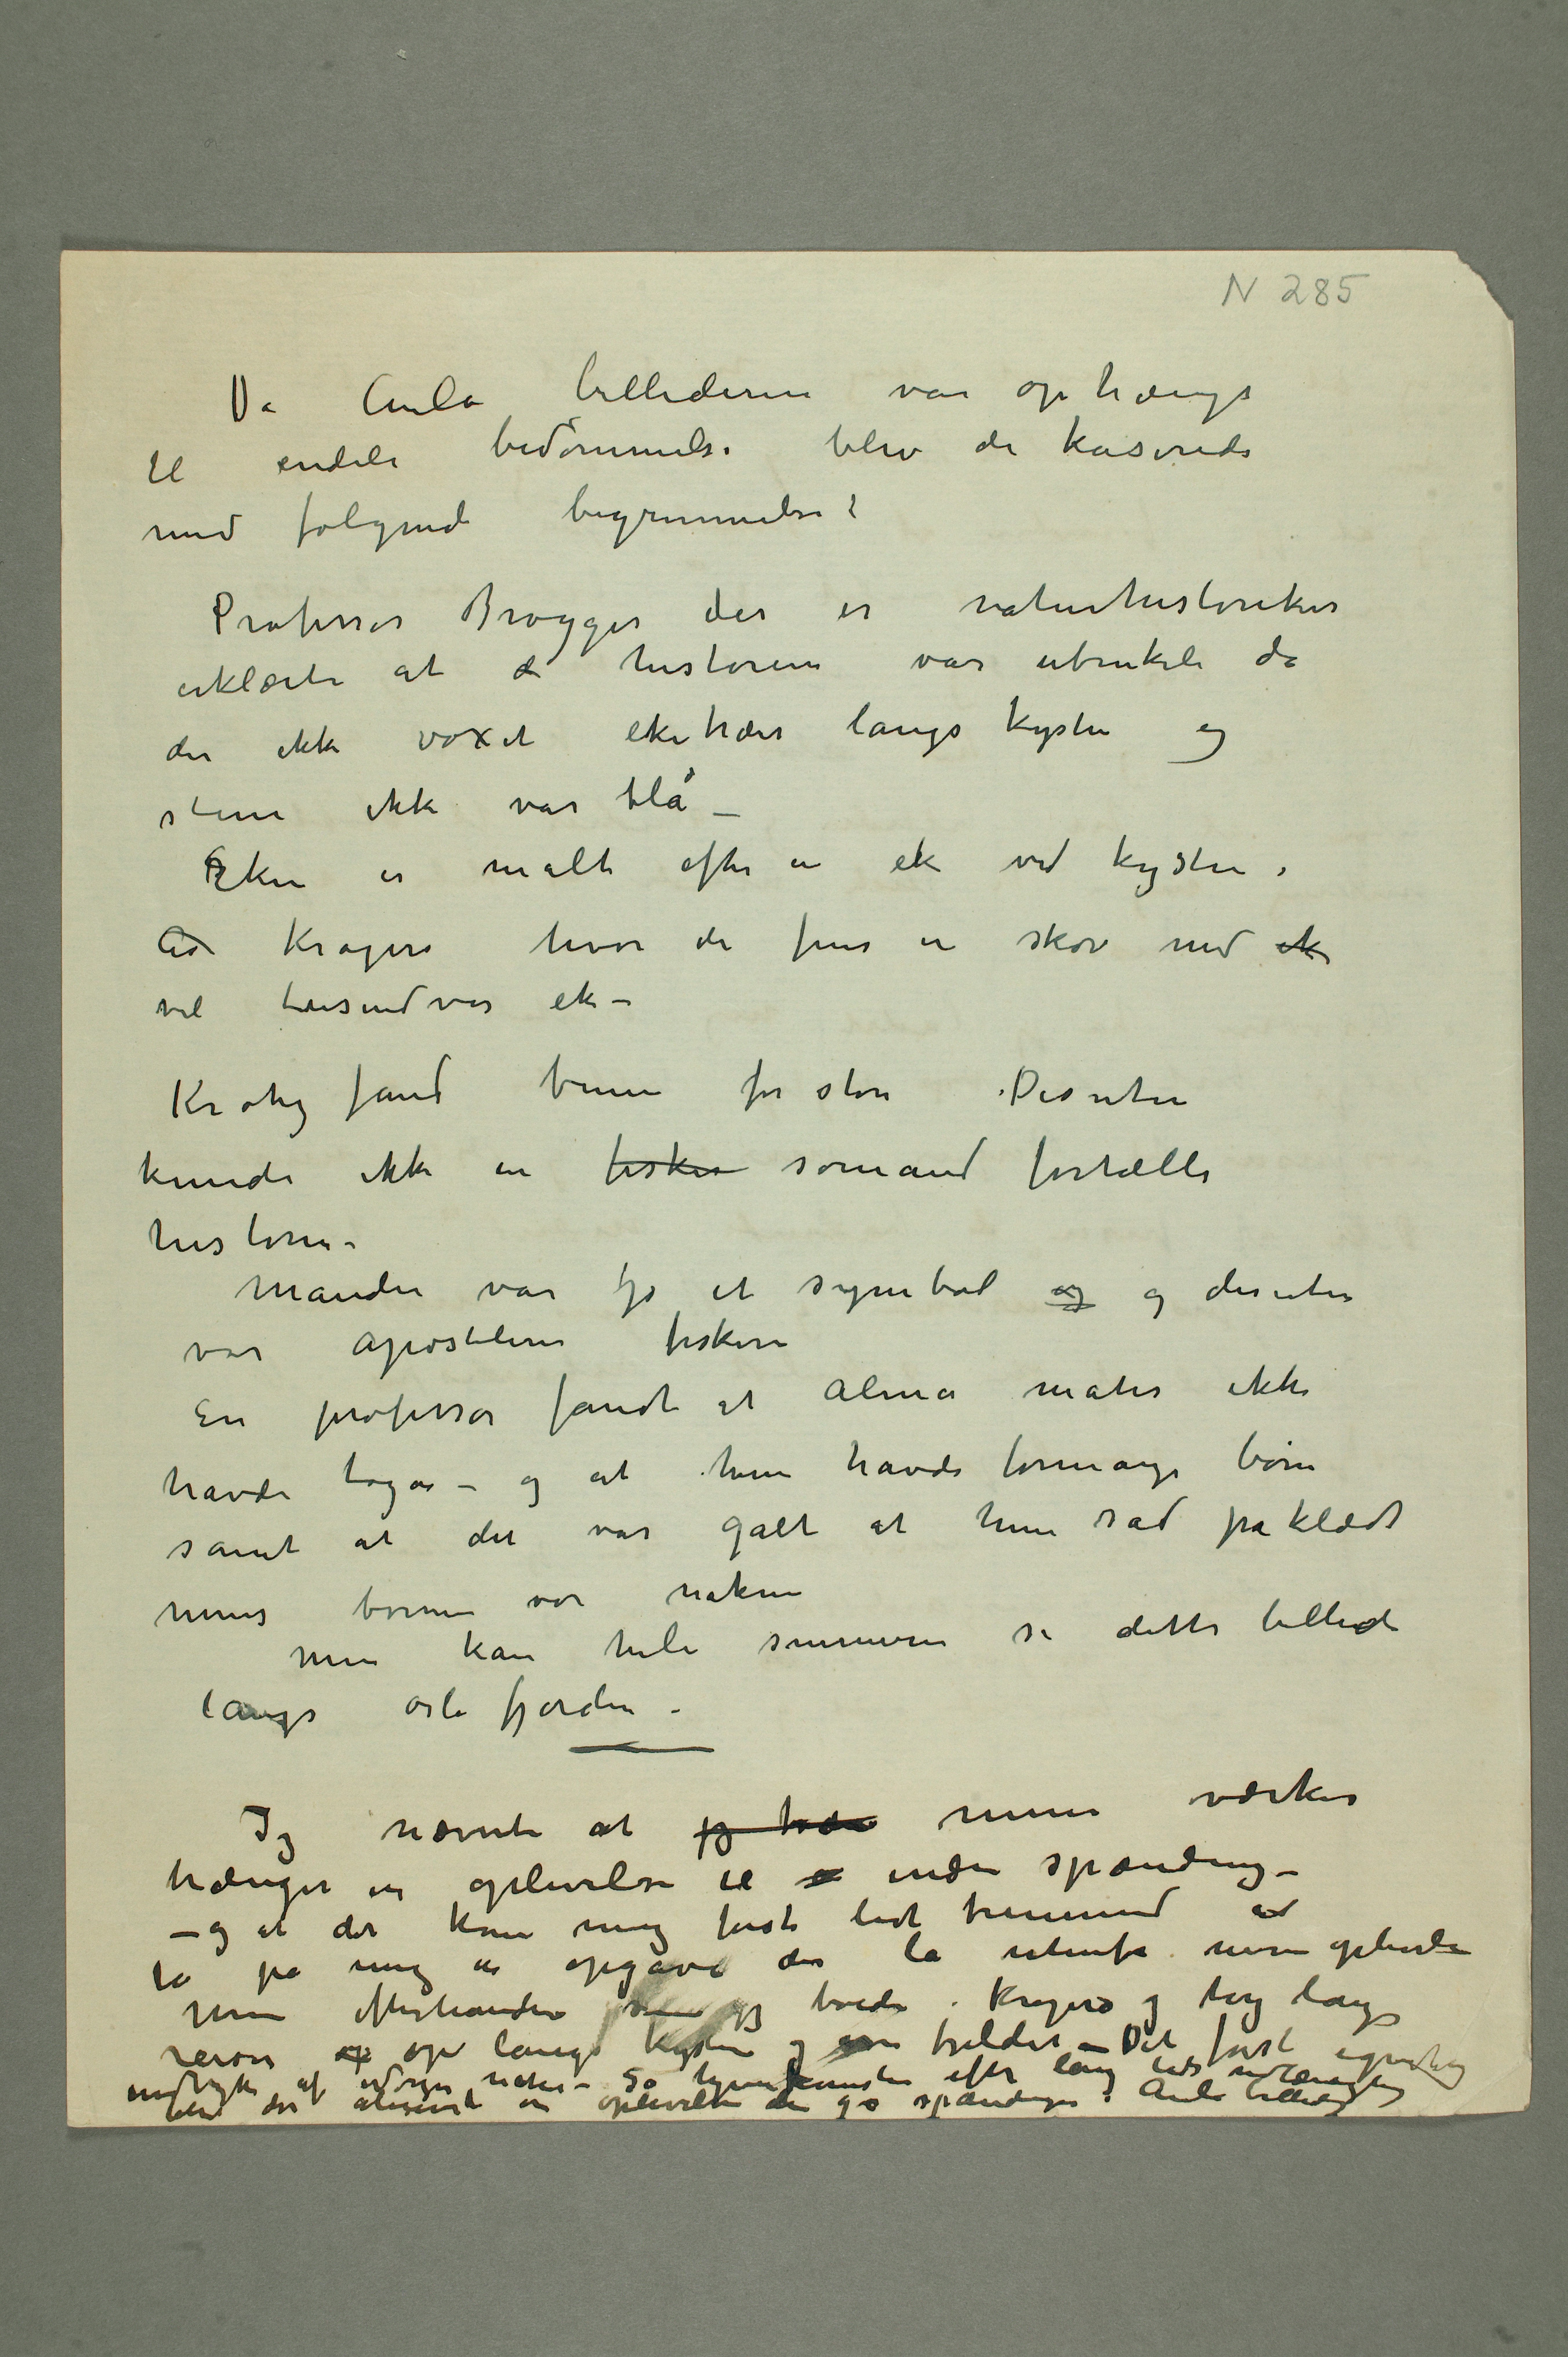 N 285
Da Aula billederne var ophængt
til endeli bedømmelse blev de kaserede
med følgende begrunnelse:
Professor Brøgger der er naturhistoriker
erklærte at historien var ubrukeli da
der ikke voxet eketrær langs kysten og
stene ikke var blå –
Eken er malt efter en ek ved kysten i
Kragerø hvor de fins en skov med ek
vel tusendvis ek –
Krohg fand benene for store Desuten
kunde ikke en fisker sømand fortælle
historie –
Manden var jo et symbol og og desuten
var apostelerne fiskere
En professor fandt at Alma mater ikke
havde toga – og at hun havde formange børn
samt at det var galt at hun sad påklædt
mens børnene var nakne
Men kan hele sommeren se dette billede
langs oslofjorden –
Jeg nævnte at jeg træn mine værker
trænger en oplevelse til inden spænding –
– og at det kom mig først lidt fremmed at
ta på mig en opgave der lå utenfor min oplevelse
Men efterhånden jeg boede i Kragerø og tog lange
reiser op op langs kysten og over fjeldet – Det først
af norges natur – Så efter lang tids
blev der en oplevelse der ga spændingen i Aula billedene